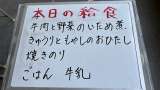 本日の給食
牛肉と野菜のいため煮
きゅうりともやしのおひたし
焼きのり
ごはん 牛乳